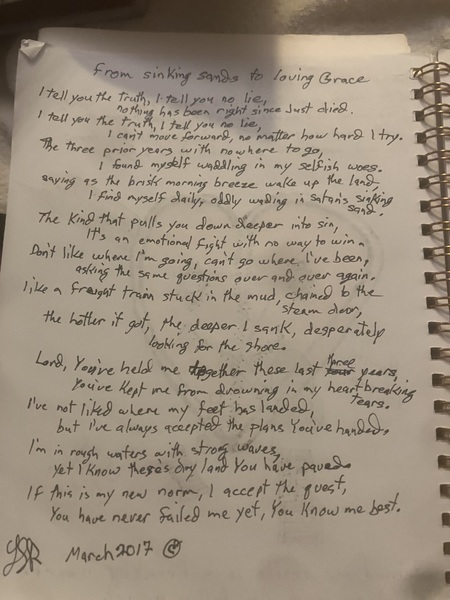 From sinking sands to loving Grace
I tell you the truth, I tell you no lie,
nothing has been right since Just died.
I tell you the truth, I tell you no lie,
I can't move forward, no matter how hard I try.
The three prior years with nowhere to go,
I found myself waddling in my selfish woes.
as the brisk morning breeze wake up the land,
I find myself daily, oddly wading in satan's sinking
sand.
The kind that pulls you down deeper into sin,
It's an emotional fight with no way to win.
Don't like where I'm going, can't go where I've been,
asking the same questions over and over again.
like a fraught train stuck in the mud, chained to the
steam door,
the hotter it got, the deeper I sank, desperately
looking for the shore.
Lord, You've held me together these last three years,
You've kept me from drowning in my heartbreaking
tears.
I've not liked where my feet has landed,
but I've always accepted the plans You've handed.
I'm in rough waters with strong waves,
yet I know there's dry land You have paved.
If this is my new norm, I accept the quest,
You have never failed me yet, You know me best.
March 2017 ©